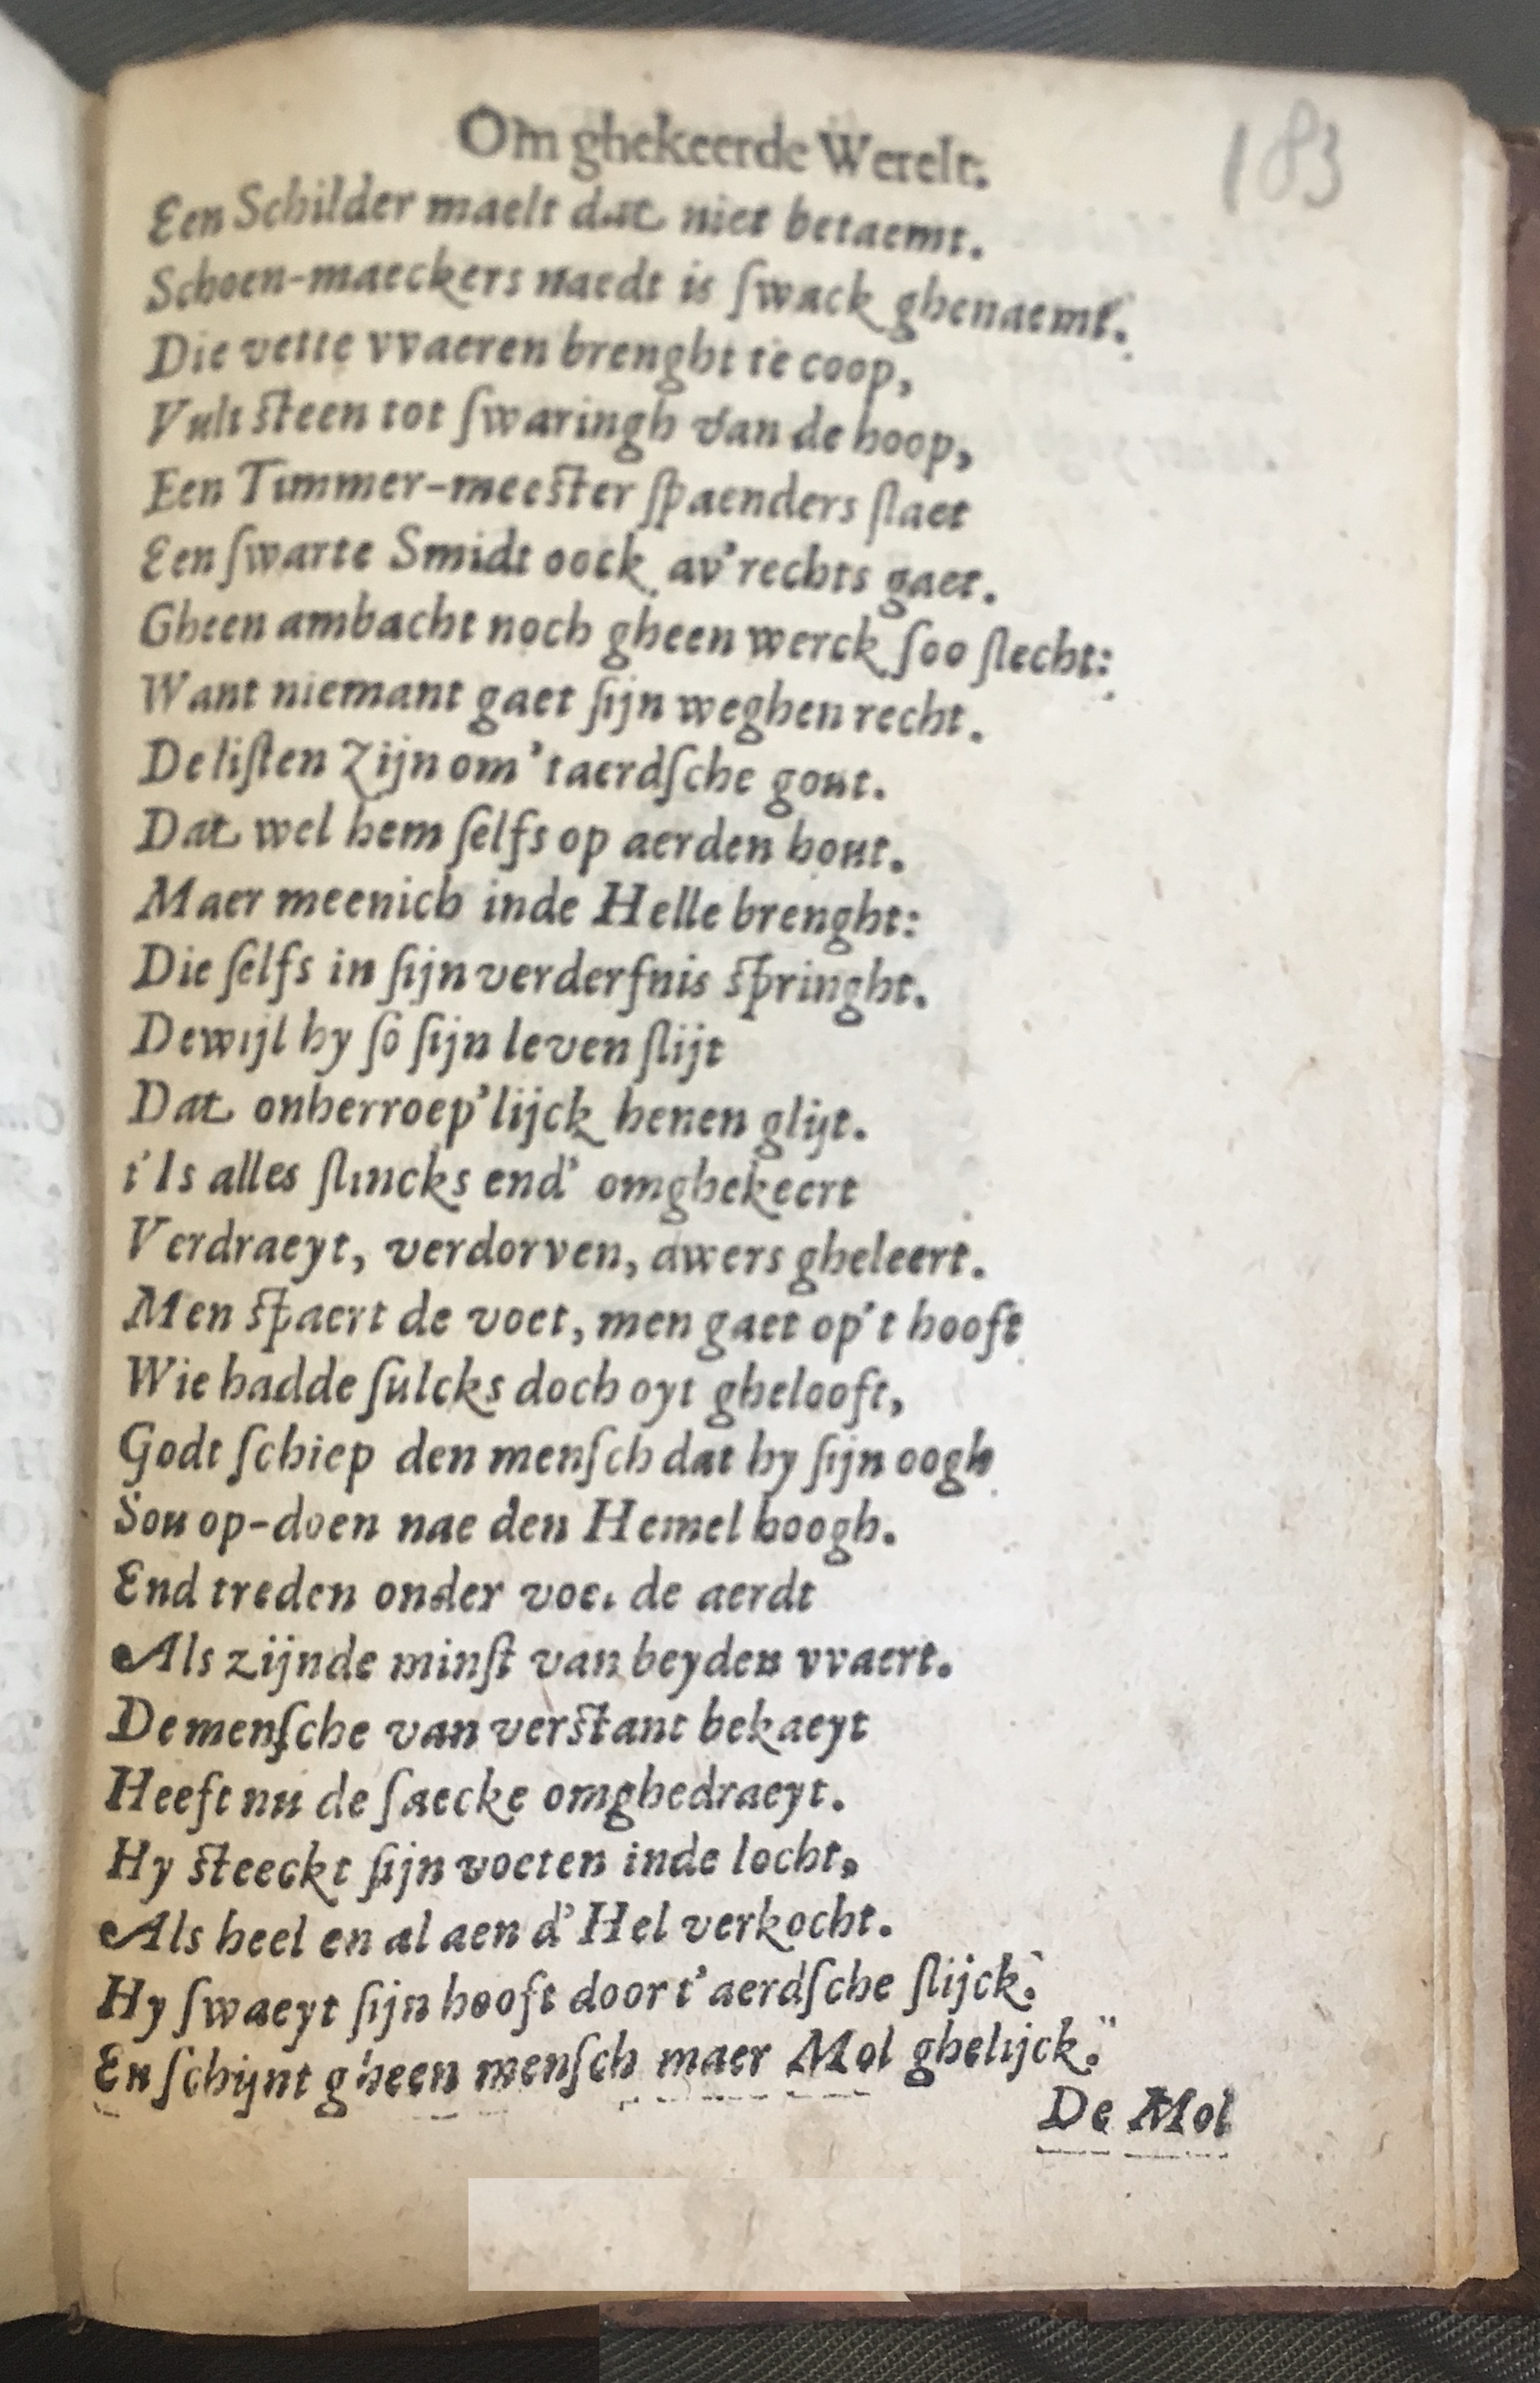 Om ghekeerde Werelt.
183
Een Schilder maelt dat niet betaemt.
Schoen-maeckers naedt is ſwack ghenaemt.
Die vette vvaeren brenght te coop,
Vult steen tot ſwaringh van de hoop,
Een Timmer-meester ſpaenders ſlaet
Een ſwarte Smidt oock av'rechts gaet.
Gheen ambacht noch gheen werck ſoo ſlecht:
Want niemant gaet ſijn weghen recht.
De liſten zijn om 'taerdſche gout.
Dat wel hem ſelfs op aerden hout.
Maer meenich inde Helle brenght:
Die ſelfs in ſijn verderfnis springht.
Dewijl hy ſo ſijn leven ſlijt
Dat onherroep'lijck henen glijt.
t'Is alles ſlincks end' omghekeert
Verdraeyt, verdorven, dwers gheleert.
Men spaert de voet, men gaet op't hooft
Wie hadde ſulcks doch oyt ghelooft,
Godt ſchiep den menſch dat hy ſijn oogh
Sou op-doen nae den Hemel hoogh.
End treden onder voet de aerdt
Als zijnde minſt van beyden vvaert.
De menſche van verstant bekaeyt
Heeft nu de ſaecke omghedraeyt.
Hy steeckt ſijn voeten inde locht,
Als heel en al aen d'Hel verkocht.
Hy ſwaeyt ſijn hooft door t'aerdſche ſlijck.
En ſchijnt gheen menſch maer Mol ghelijck.
De Mol